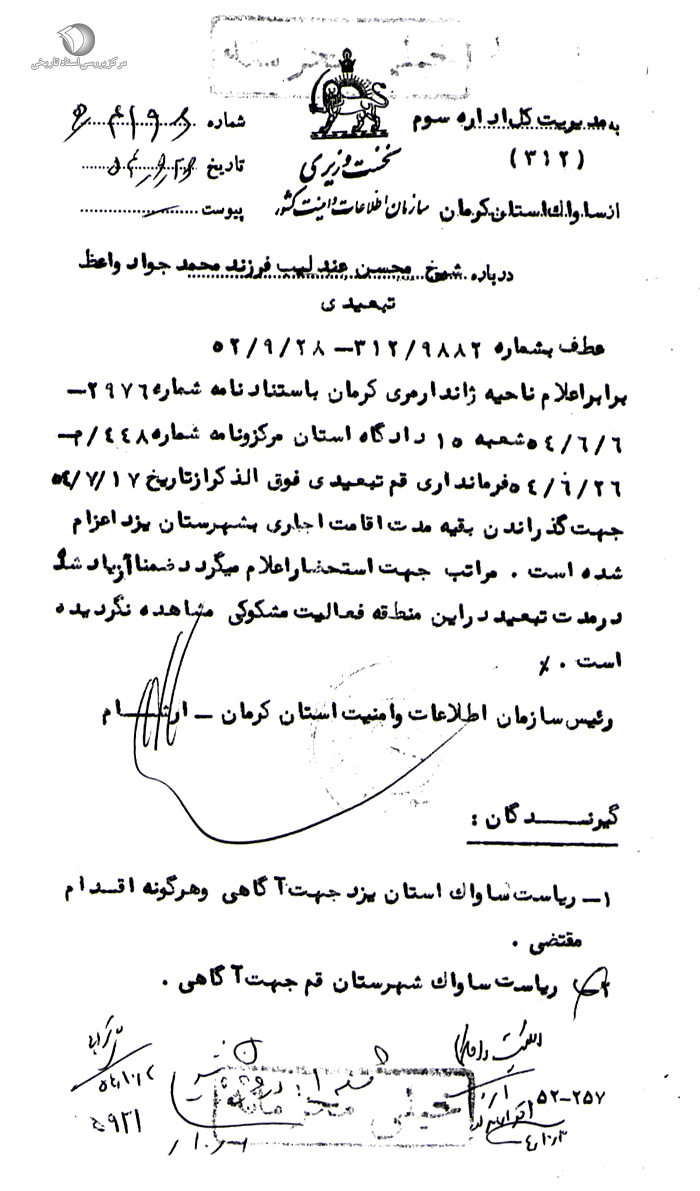 مرکز بررسی اسناد تاریخی
خیلی محرمانه
به مدیریت کل اداره سوم
(۳۱۲)
از ساواك استان کرمان
نخست وزیری
سازمان اطلاعات و امنیت کشور
شماره
تاریخ
پیوست
درباره شیخ محسن عندلیب فرزند محمد جواد واعظ
تبعیدی
عطف بشماره ۳۱۲/۹۸۸۲ – ۵۲/۹/۲۸
برابر اعلام ناحیه ژاندارمری کرمان باستناد نامه شماره ۲۹۷۶ –
۵۴/۶/۶ شعبه ۱۵ دادگاه استان مرکز و نامه شماره ۴۴۸/م –
۵۴/۶/۲۶ فرمانداری قم تبعیدی فوق الذکر از تاریخ ۵۴/۷/۱۷
جهت گذراندن بقیه مدت اقامت اجباری بشهرستان یزد اعزام
شده است . مراتب جهت استحضار اعلام میگردد ضمنا
در مدت تبعید در این منطقه فعالیت مشکوکی مشاهده نگردیده
است . %
رئیس سازمان اطلاعات و امنیت استان کرمان – ارشام
گیرنـــدگان :
۱– ریاست ساواك استان یزد جهت آگاهی و هرگونه اقدام
مقتضی .
۲– ریاست ساواك شهرستان قم جهت آگاهی .
۵۲–۲۵۷
خیلی محرمانه